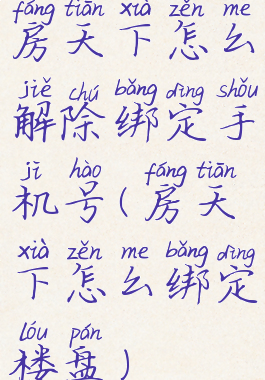 fáng tiān xià zěn me
房天下怎么
jiě chú bǎng dìng shǒu
解除绑定手
jī hào fáng tiān
机号(房天
xià zěn me bǎng dìng
下怎么绑定
lóu pán
楼盘)